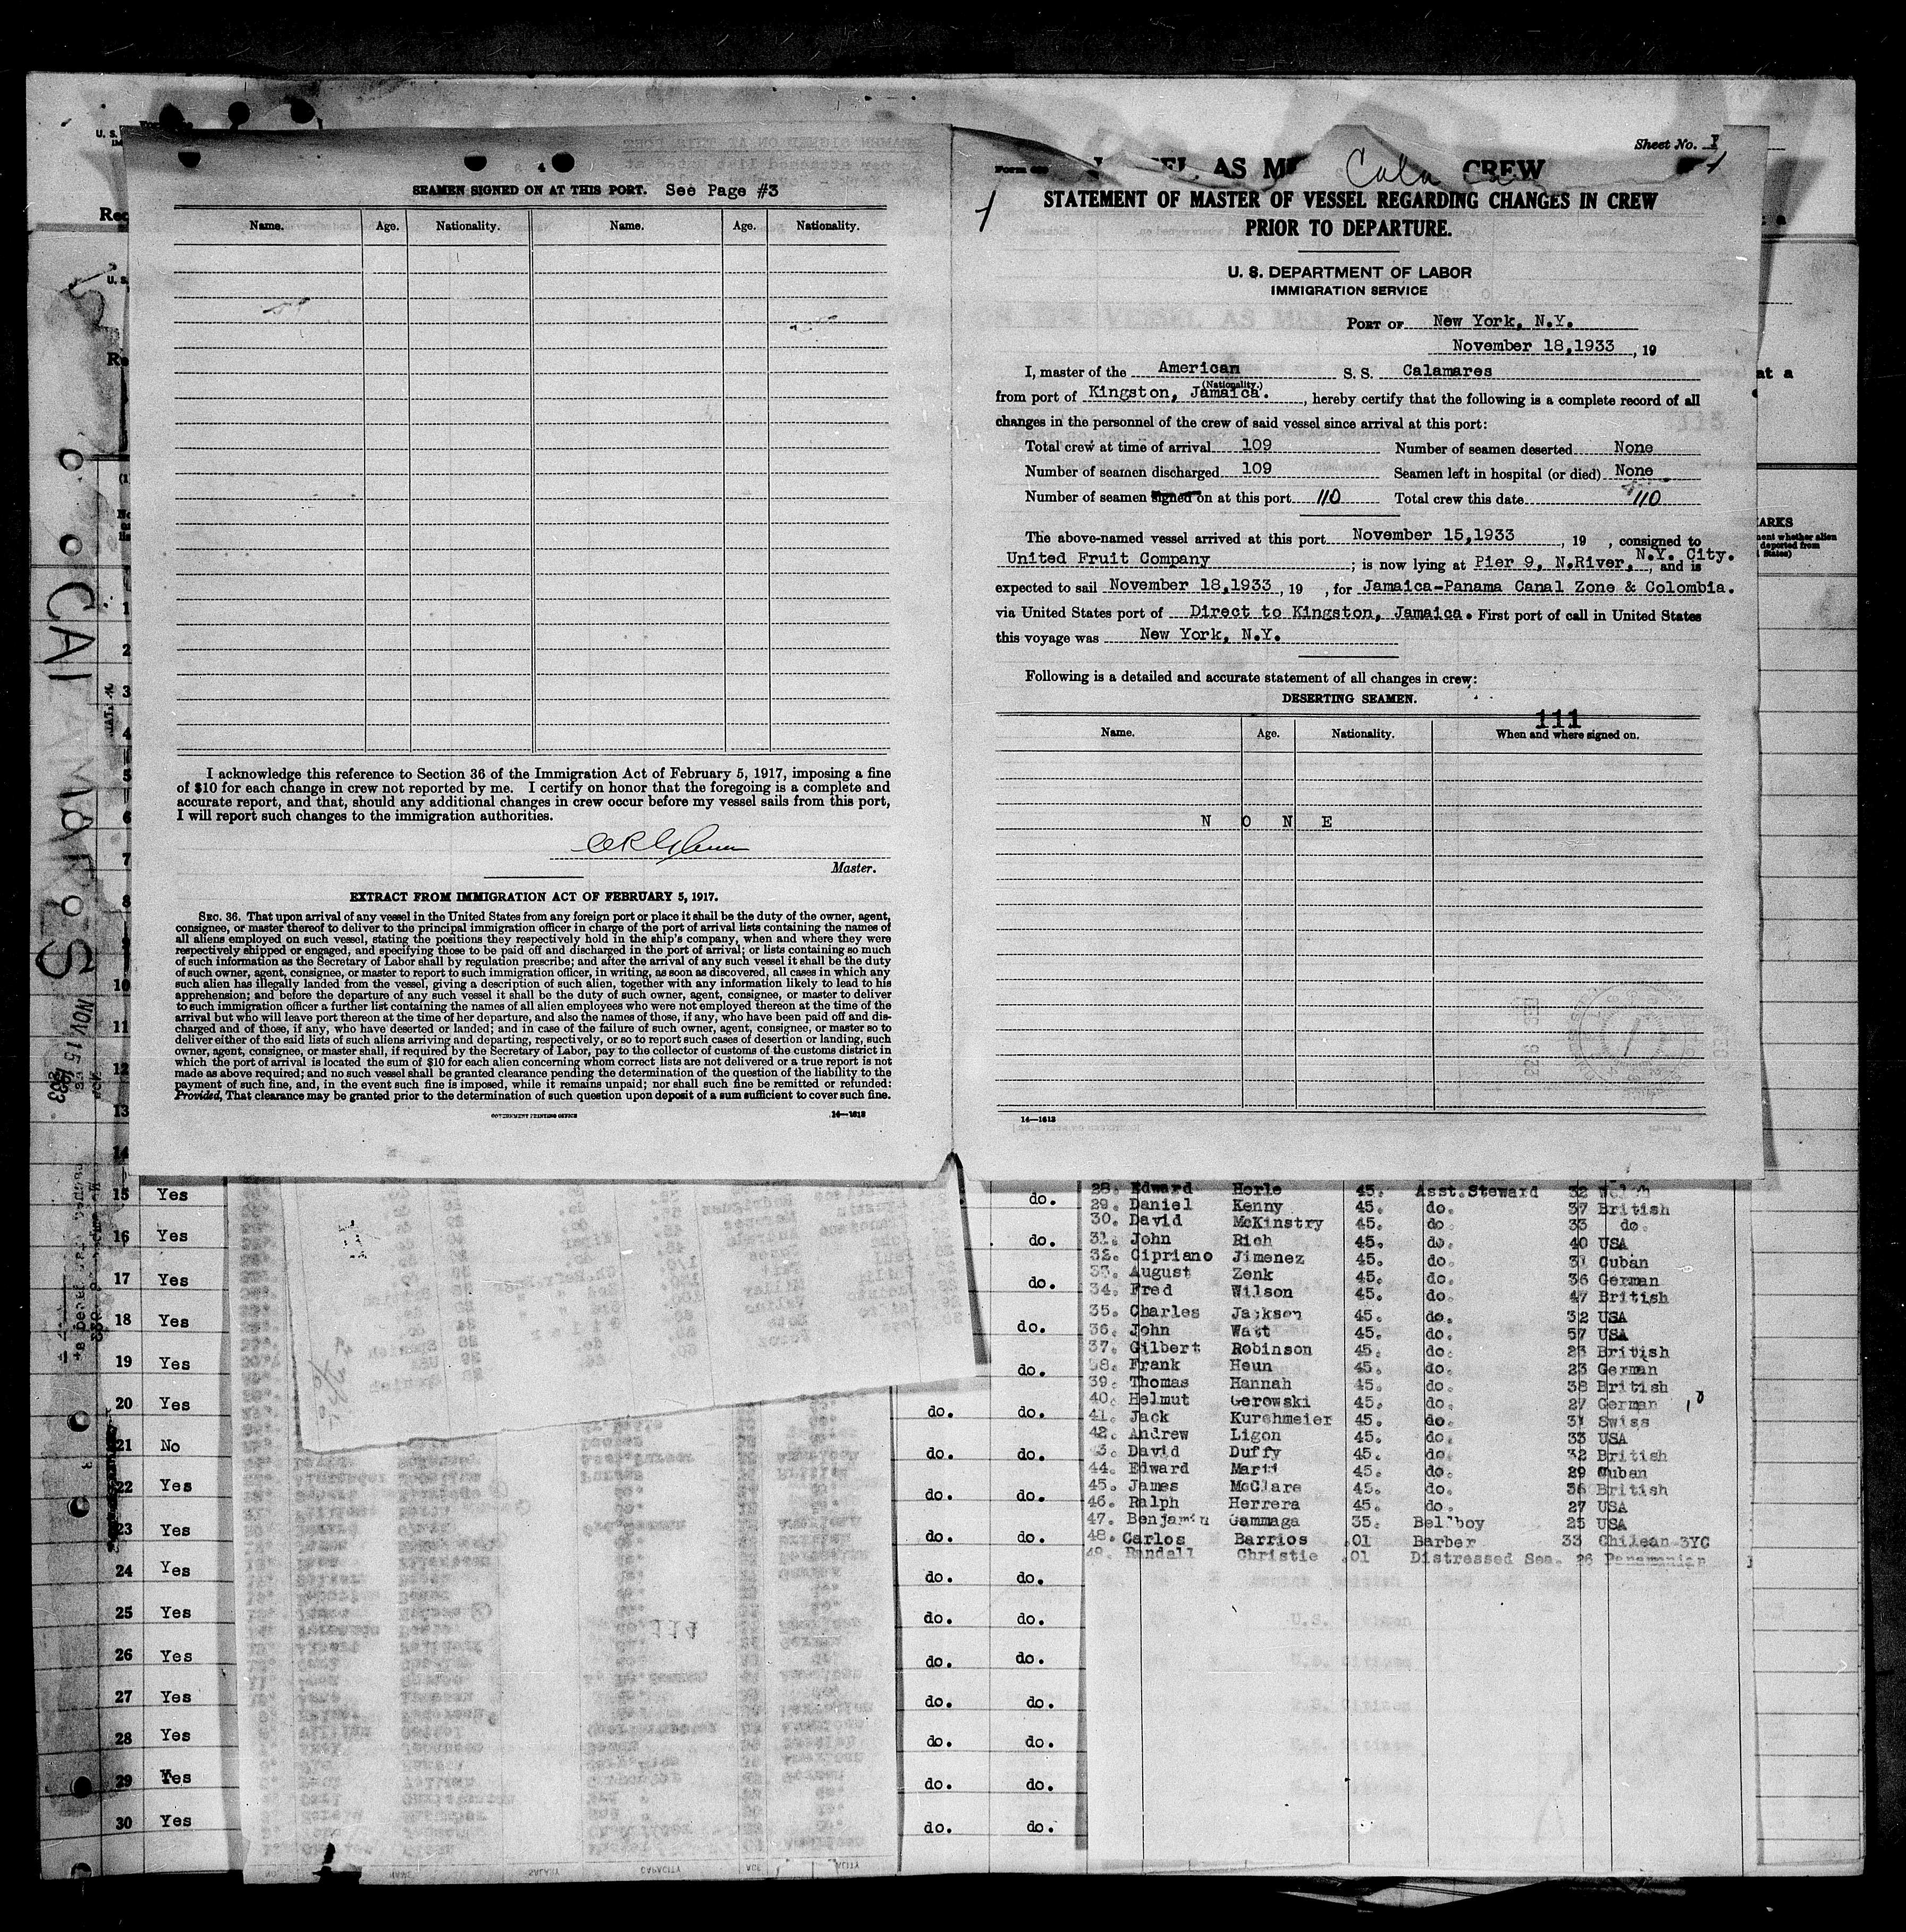 SEAMEN SIGNED ON AT THIS PORT. See Page #3
Name. Age. Nationality. Name. Age. Nationality.
I acknowledge this reference to Section 36 of the Immigration Act of February 5, 1917, imposing a fine
of $10 for each change in crew not reported by me. I certify on honor that the foregoing is a complete and
accurate report, and that, should any additional changes in crew occur before my vessel sails from this port,
I will report such changes to the immigration authorities.
Master.
EXTRACT FROM IMMIGRATION ACT OF FEBRUARY 5, 1917.
SEC. 36. That upon arrival of any vessel in the United States from any foreign port or place it shall be the duty of the owner, agent,
consignee, or master thereof to deliver to the principal immigration officer in charge of the port of arrival lists containing the names of
all aliens employed on such vessel, stating the positions they respectively hold in the ship's company, when and where they were
respectively shipped or engaged, and specifying those to be paid off and discharged in the port of arrival; or lists containing so much
of such information as the Secretary of Labor shall by regulation prescribe; and after the arrival of any such vessel it shall be the duty
of such owner, agent, consignee, or master to report to such immigration officer, in writing, as soon as discovered, all cases in which any
such alien has illegally landed from the vessel, giving a description of such alien, together with any information likely to lead to his
apprehension; and before the departure of any such vessel it shall be the duty of such owner, agent, consignee, or master to deliver
to such immigration officer a further list containing the names of all alien employees who were not employed thereon at the time of the
arrival but who will leave port thereon at the time of her departure, and also the names of those, if any, who have been paid off and dis-
charged and of those, if any, who have deserted or landed; and in case of the failure of such owner, agent, consignee, or master so to
deliver either of the said lists of such aliens arriving and departing, respectively, or so to report such cases of desertion or landing, such
owner, agent, consignee, or master shall, if required by the Secretary of Labor, pay to the collector of customs of the customs district in
which the port of arrival is located the sum of $10 for each alien concerning whom correct lists are not delivered or a true report is not
made as above required; and no such vessel shall be granted clearance pending the determination of the question of the liability to the
payment of such fine, and, in the event such fine is imposed, while it remains unpaid; nor shall such fine be remitted or refunded:
Provided, That clearance may be granted prior to the determination of such question upon deposit of a sum sufficient to cover such fine.
GOVERNMENT PRINTING OFFICE 14—1613
Sheet No. 1
AS CREW
STATEMENT OF MASTER OF VESSEL REGARDING CHANGES IN CREW
PRIOR TO DEPARTURE.
U. S. DEPARTMENT OF LABOR
IMMIGRATION SERVICE
PORT OF New York, N.Y.
November 18,1933, 19
I, master of the American S. S. Calamares
(Nationality.)
from port of Kingston, Jamaica., hereby certify that the following is a complete record of all
changes in the personnel of the crew of said vessel since arrival at this port:
Total crew at time of arrival 109 Number of seamen deserted None
Number of seamen discharged 109 Seamen left in hospital (or died) None
Number of seamen signed on at this port 110 Total crew this date 110
The above-named vessel arrived at this port November 15,1933, 19 , consigned to
United Fruit Company; is now lying at Pier 9, N.River, N.Y. City., and is
expected to sail November 18,1933, 19 , for Jamaica-Panama Canal Zone & Colombia.
via United States port of Direct to Kingston, Jamaica. First port of call in United States
this voyage was New York, N.Y.
Following is a detailed and accurate statement of all changes in crew:
DESERTING SEAMEN.
111
Name. Age. Nationality. When and where signed on.
N O N E
14—1613
28. Edward Horle 45. Asst.Steward 32 Welch
29. Daniel Kenny 45. do. 37 British
30. David McKinstry 45. do 33 do.
31. John Rich 45. do. 40 USA
32. Cipriano Jimenez 45. do. 31 Cuban
33. August Zenk 45. do. 36 German
34. Fred Wilson 45. do. 47 British
35. Charles Jackson 45. do. 32 USA
36. John Watt 45. do. 57 USA
37. Gilbert Robinson 45. do. 23 British
38. Frank Heun 45. do. 23 German
39. Thomas Hannah 45. do. 38 British
40. Helmut Gerowski 45. do. 27 German
41. Jack Kurchmeier 45. do. 31 Swiss
42. Andrew Ligon 45. do. 33 USA
43. David Duffy 45. do. 32 British
44. Edward Marti 45. do. 29 Cuban
45. James McClare 45. do. 36 British
46. Ralph Herrera 45. do. 27 USA
47. Benjamin Gammaga 35. Bellboy 25 USA
48. Carlos Barrios .01 Barber 33 Chilean 3YC
49. Randall Christie .01 Distressed Sea. 26 Panamanian
15 Yes do.
16 Yes do.
17 Yes do.
18 Yes do.
19 Yes do.
20 Yes do. do.
21 No do. do.
22 Yes do. do.
23 Yes do. do.
24 Yes do. do.
25 Yes do. do.
26 Yes do. do.
27 Yes do. do.
28 Yes do. do.
29 Yes do. do.
30 Yes do. do.
NOV 15 1933